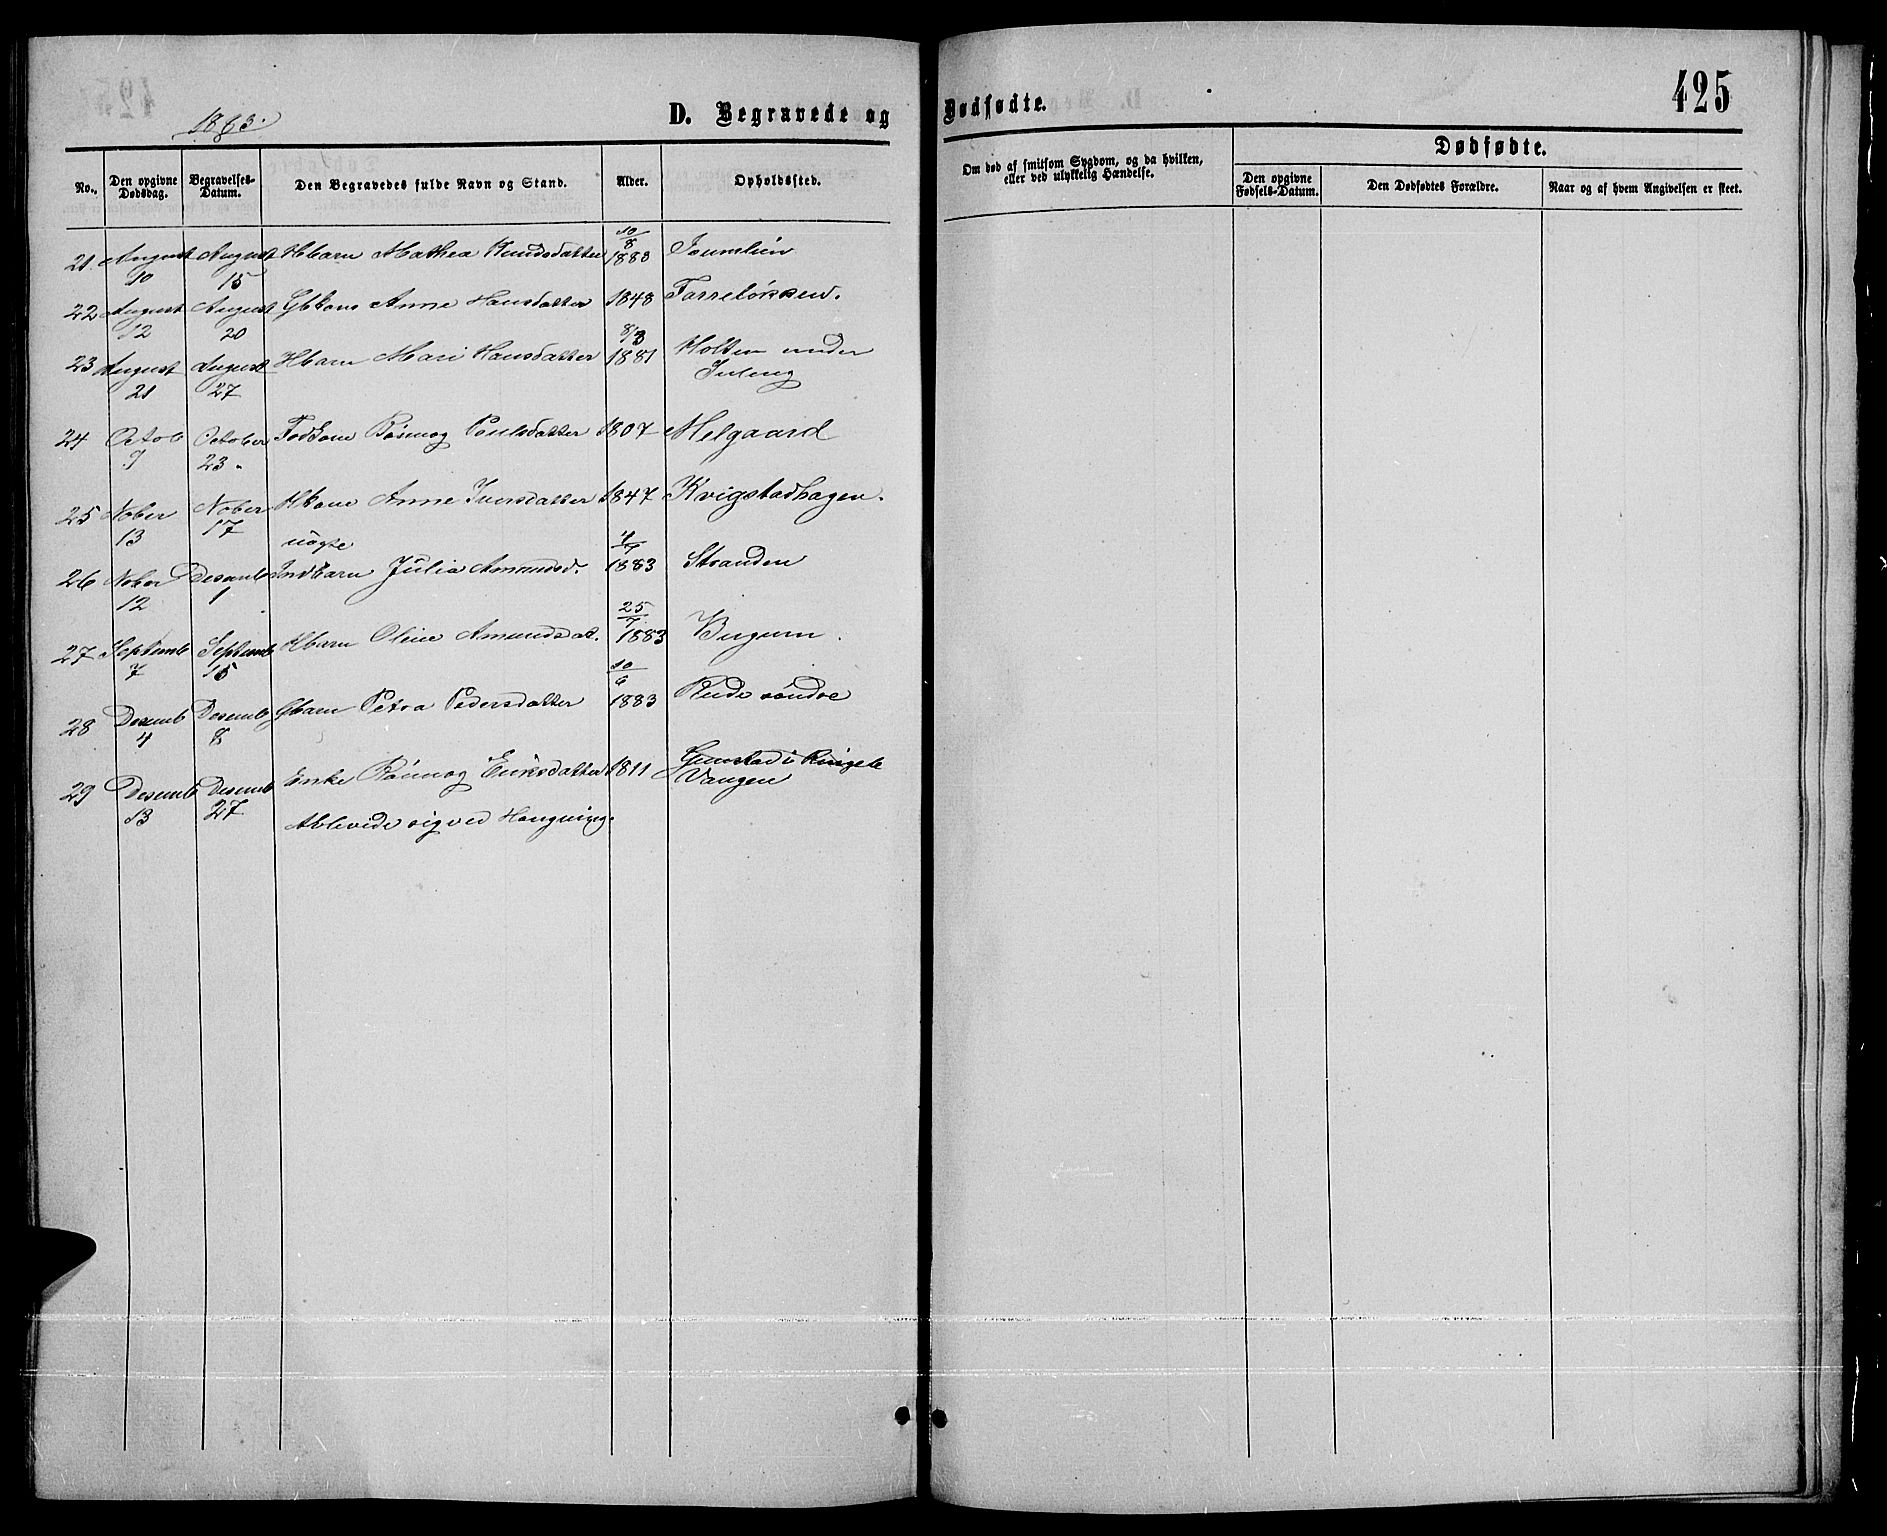 425
1883.
D. Begravede og Dødfødte.
No. Den opgivne Dødsdag. Begravelses-Datum. Den Begravedes fulde Navn og Stand. Alder. Opholdssted. Om død af smitsom Sygdom, og da hvilken, eller ved ulykkelig Hændelse. Dødfødte.
Den opgivne Fødsels-Datum. Den Dødfødtes Forældre. Naar og af hvem Angivelsen er skeet.
10/8
21. August August Hbarn Mathea Knudsdatter 1883
10 15
22 August August Gbkone Anne Hansdatter 1848 Torreløkken.
12 20
8/3
23 August August Hbarn Mari Hansdatter 1881 Holten under
21 27
24 Octob October Fødkone Rønnog Poulsdatter 1807 Melgaard
9 23.
25 Nober Nober Hkone Anne Iversdatter 1847 Kvigstadhagen.
13 17
uægte
26 Nober Desemb Indbarn Julia Amundsd. 1883 Stranden
12 1
25/7
27 Septemb Septemb Hbarn Oline Amundsdat. 1883
7 15
10/6
28 Desemb Desemb Gbarn Petra Pedersdatter 1883 Rude søndre
4 8
29 Desemb Desemb Enke Rønnog Eriksdatter 1811 i Ringebo
13 27 Vangen
Aflivede sig ved Hængning.